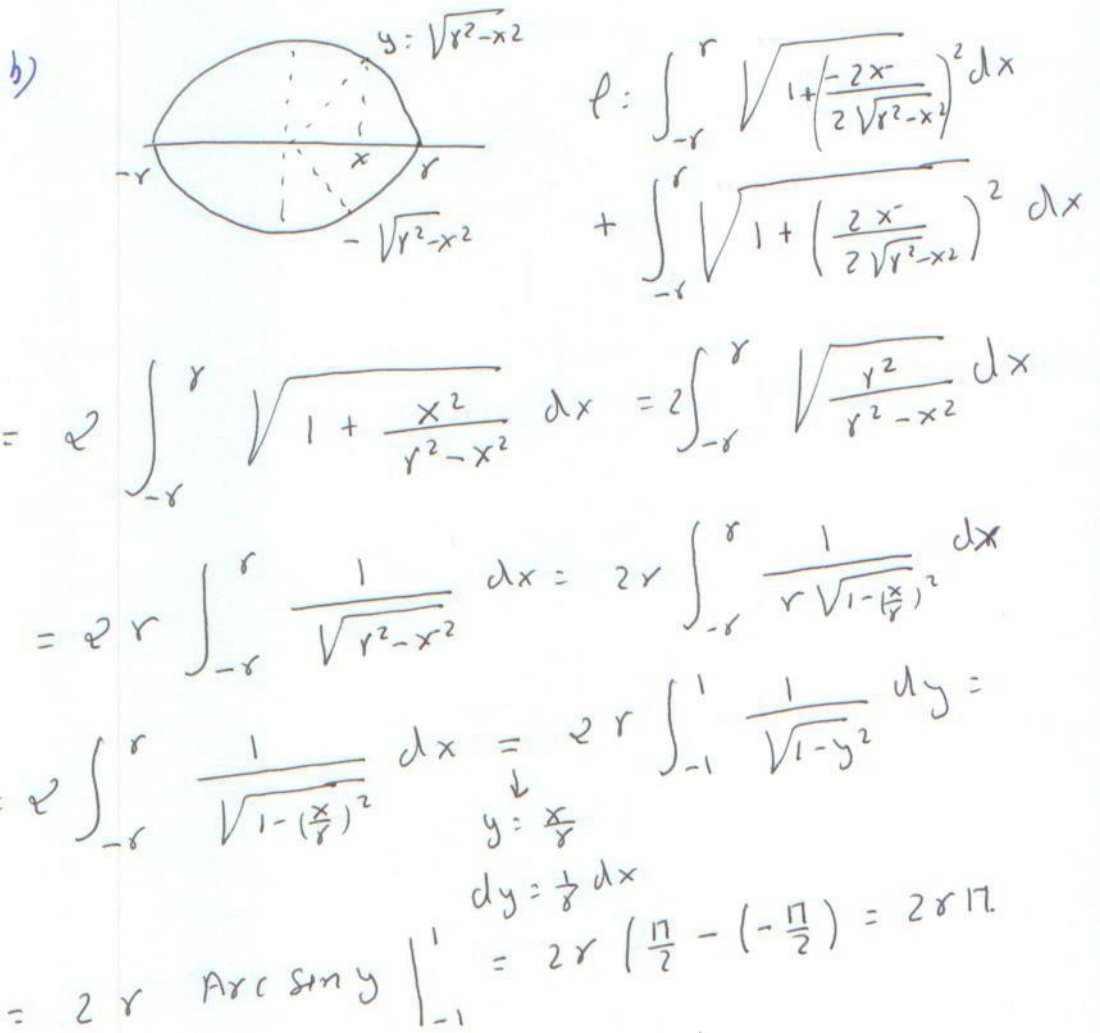 b)
y: √(r²-x²)
-r x r
-√(r²-x²)
ℓ: ∫_{-r}^{r} √(1+(-2x/(2√(r²-x²)))²) dx
+ ∫_{-r}^{r} √(1+(2x/(2√(r²-x²)))²) dx
= 2 ∫_{-r}^{r} √(1 + x²/(r²-x²)) dx = 2∫_{-r}^{r} √(r²/(r²-x²)) dx
= 2 r ∫_{-r}^{r} 1/√(r²-x²) dx = 2r ∫_{-r}^{r} 1/(r√(1-(x/r)²)) dx
= 2 ∫_{-r}^{r} 1/√(1-(x/r)²) dx = 2 r ∫_{-1}^{1} 1/√(1-y²) dy =
↓
y: x/r
dy = 1/r dx
= 2 r Arc sin y |_{-1}^{1} = 2r (π/2 - (-π/2) = 2rπ.